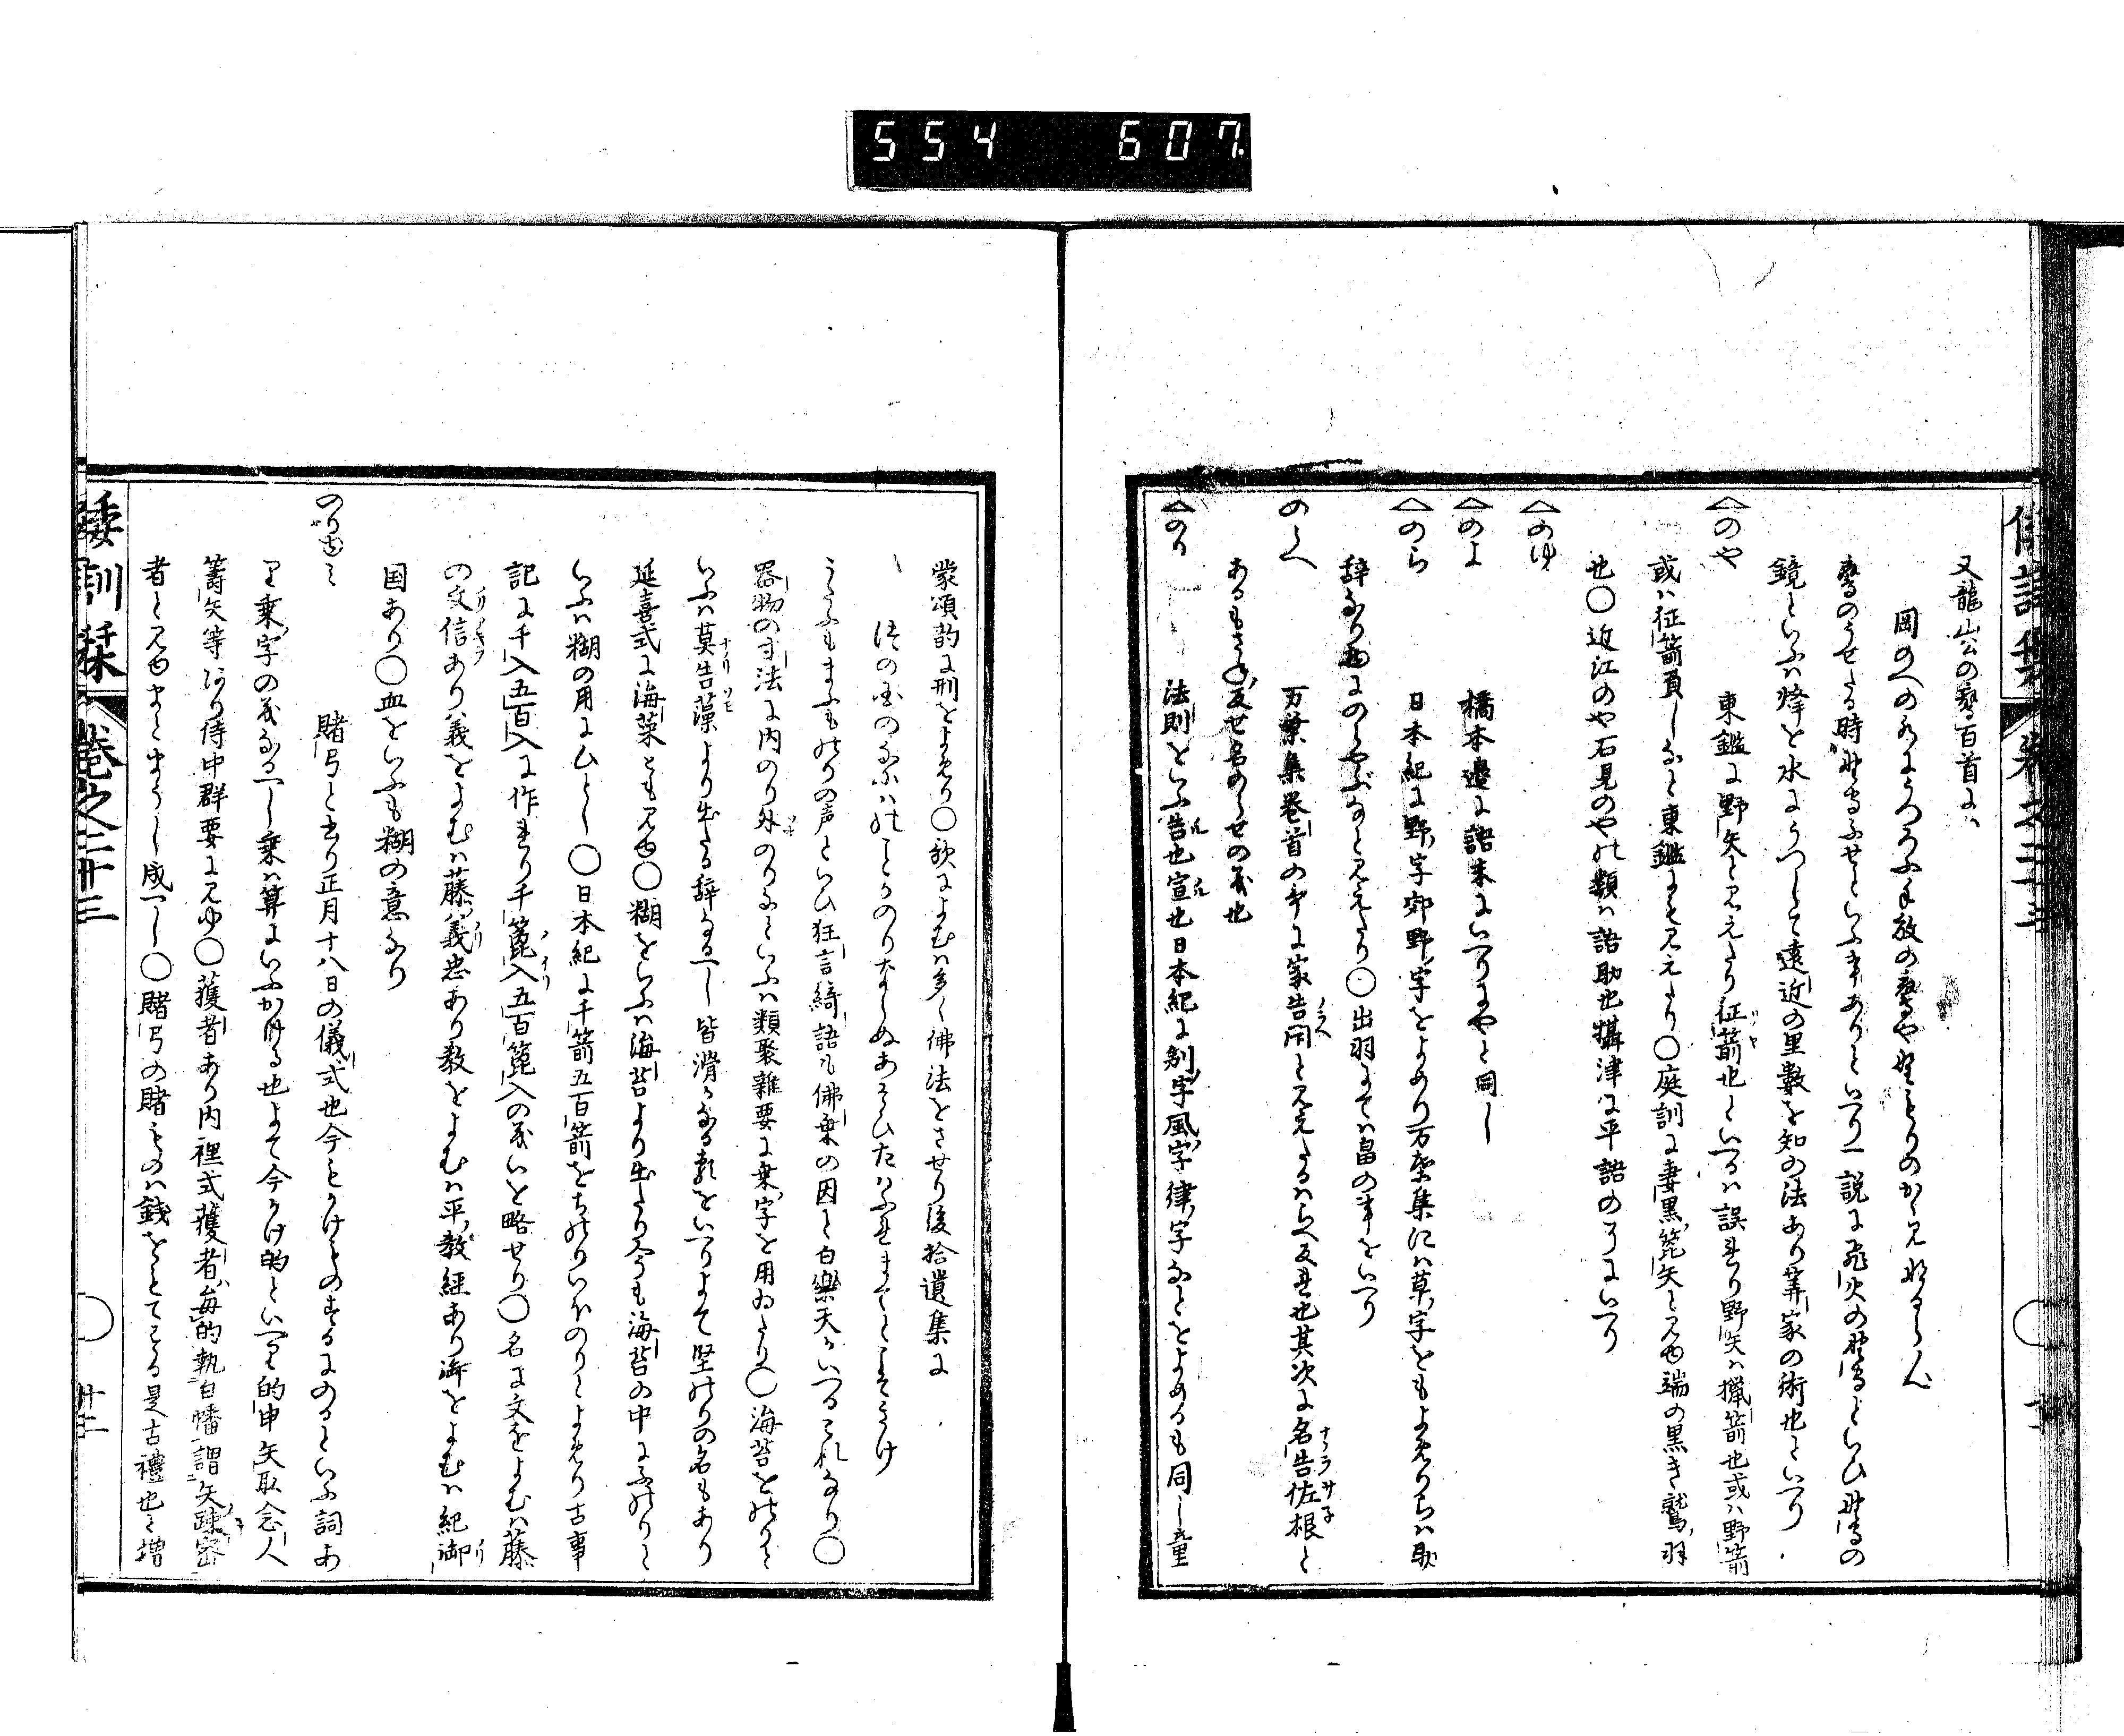 554 607
又龍山公の鷹百首に
岡のへの水にうつろふ手放の鷹や野もりのかゝみなるらん
鷹のうせたる時野守ふせといふ事ありといへり一説に飛火の野守といひ野守の
鏡といふハ烽を水にうつして遠近の里數を知の法あり筭家の術也といへり
△のや　東鑑に野矢と見えたり征箭也といへるハ誤れり野矢ハ猟箭也或ハ野箭
或ハ征箭負しなと東鑑にも見えたり〇庭訓に妻黒箆矢と見ゆ端の黒き鷲羽
也〇近江のや石見のやの類ハ語助也攝津ハ平語のうにいへり
△のゆ
△のよ　橋本邊に語末にいへりにやと同し
△のら　日本紀に野字郊野字をよめり万葉集にハ草字をもよめりらハ助
辞なり物にのらやぶなと見えたり〇出羽にてハ畠の事をいへり
のらへ　万葉集巻首の哥に家告閑と見えたるハらへ反れ也其次に名告佐根と
あるもさね反せ名のらせの義也
△のり　法則をいふ告也宣也日本紀に刻字風字律字なとをよめるも同し童
蒙頌韵に刑をよめり〇歌によむハ多く佛法をさせり後拾遺集に
津の国のなにハのことかのりならぬあそひたハふれまてとこそきけ
うたふもまふものりの声といひ狂言綺語も佛乗の因と白樂天かいへるこれなり〇
器物の寸法に内のり外のりなといふハ類聚雜要に乗字を用ゐたり〇海苔をのりと
いふハ莫告藻より出たる辞なるへし皆滑かなる義をいへりよて堅のりの名もあり
延喜式に海菜とも見ゆ〇糊をいふハ海苔より出たり今も海苔の中にふのりと
いふハ糊の用にひとし〇日本紀に千箭五百箭をちのりいほのりとよめり古事
記に千入五百入に作れり千箆入五百箆入の義いを略せり〇名に文をよむハ藤
の文信あり義をよむハ藤義忠あり教をよむハ平教經あり御をよむハ紀御
国あり〇血をいふも糊の意なり
のりゆミ　賭弓と書り正月十八日の儀式也今もかけものするにのるといふ詞あ
り乗字の義なるへし乗ハ算にいふかける也よて今かけ的といへり的申矢取念人
籌矢等あり侍中群要に見ゆ〇獲者あり内裡式獲者ハ毎的執白幡謂矢踈密
者と見ゆまとまうし成へし〇賭弓の賭ものハ銭をとてする是古禮也と増
倭訓栞　巻之二十三　廿二